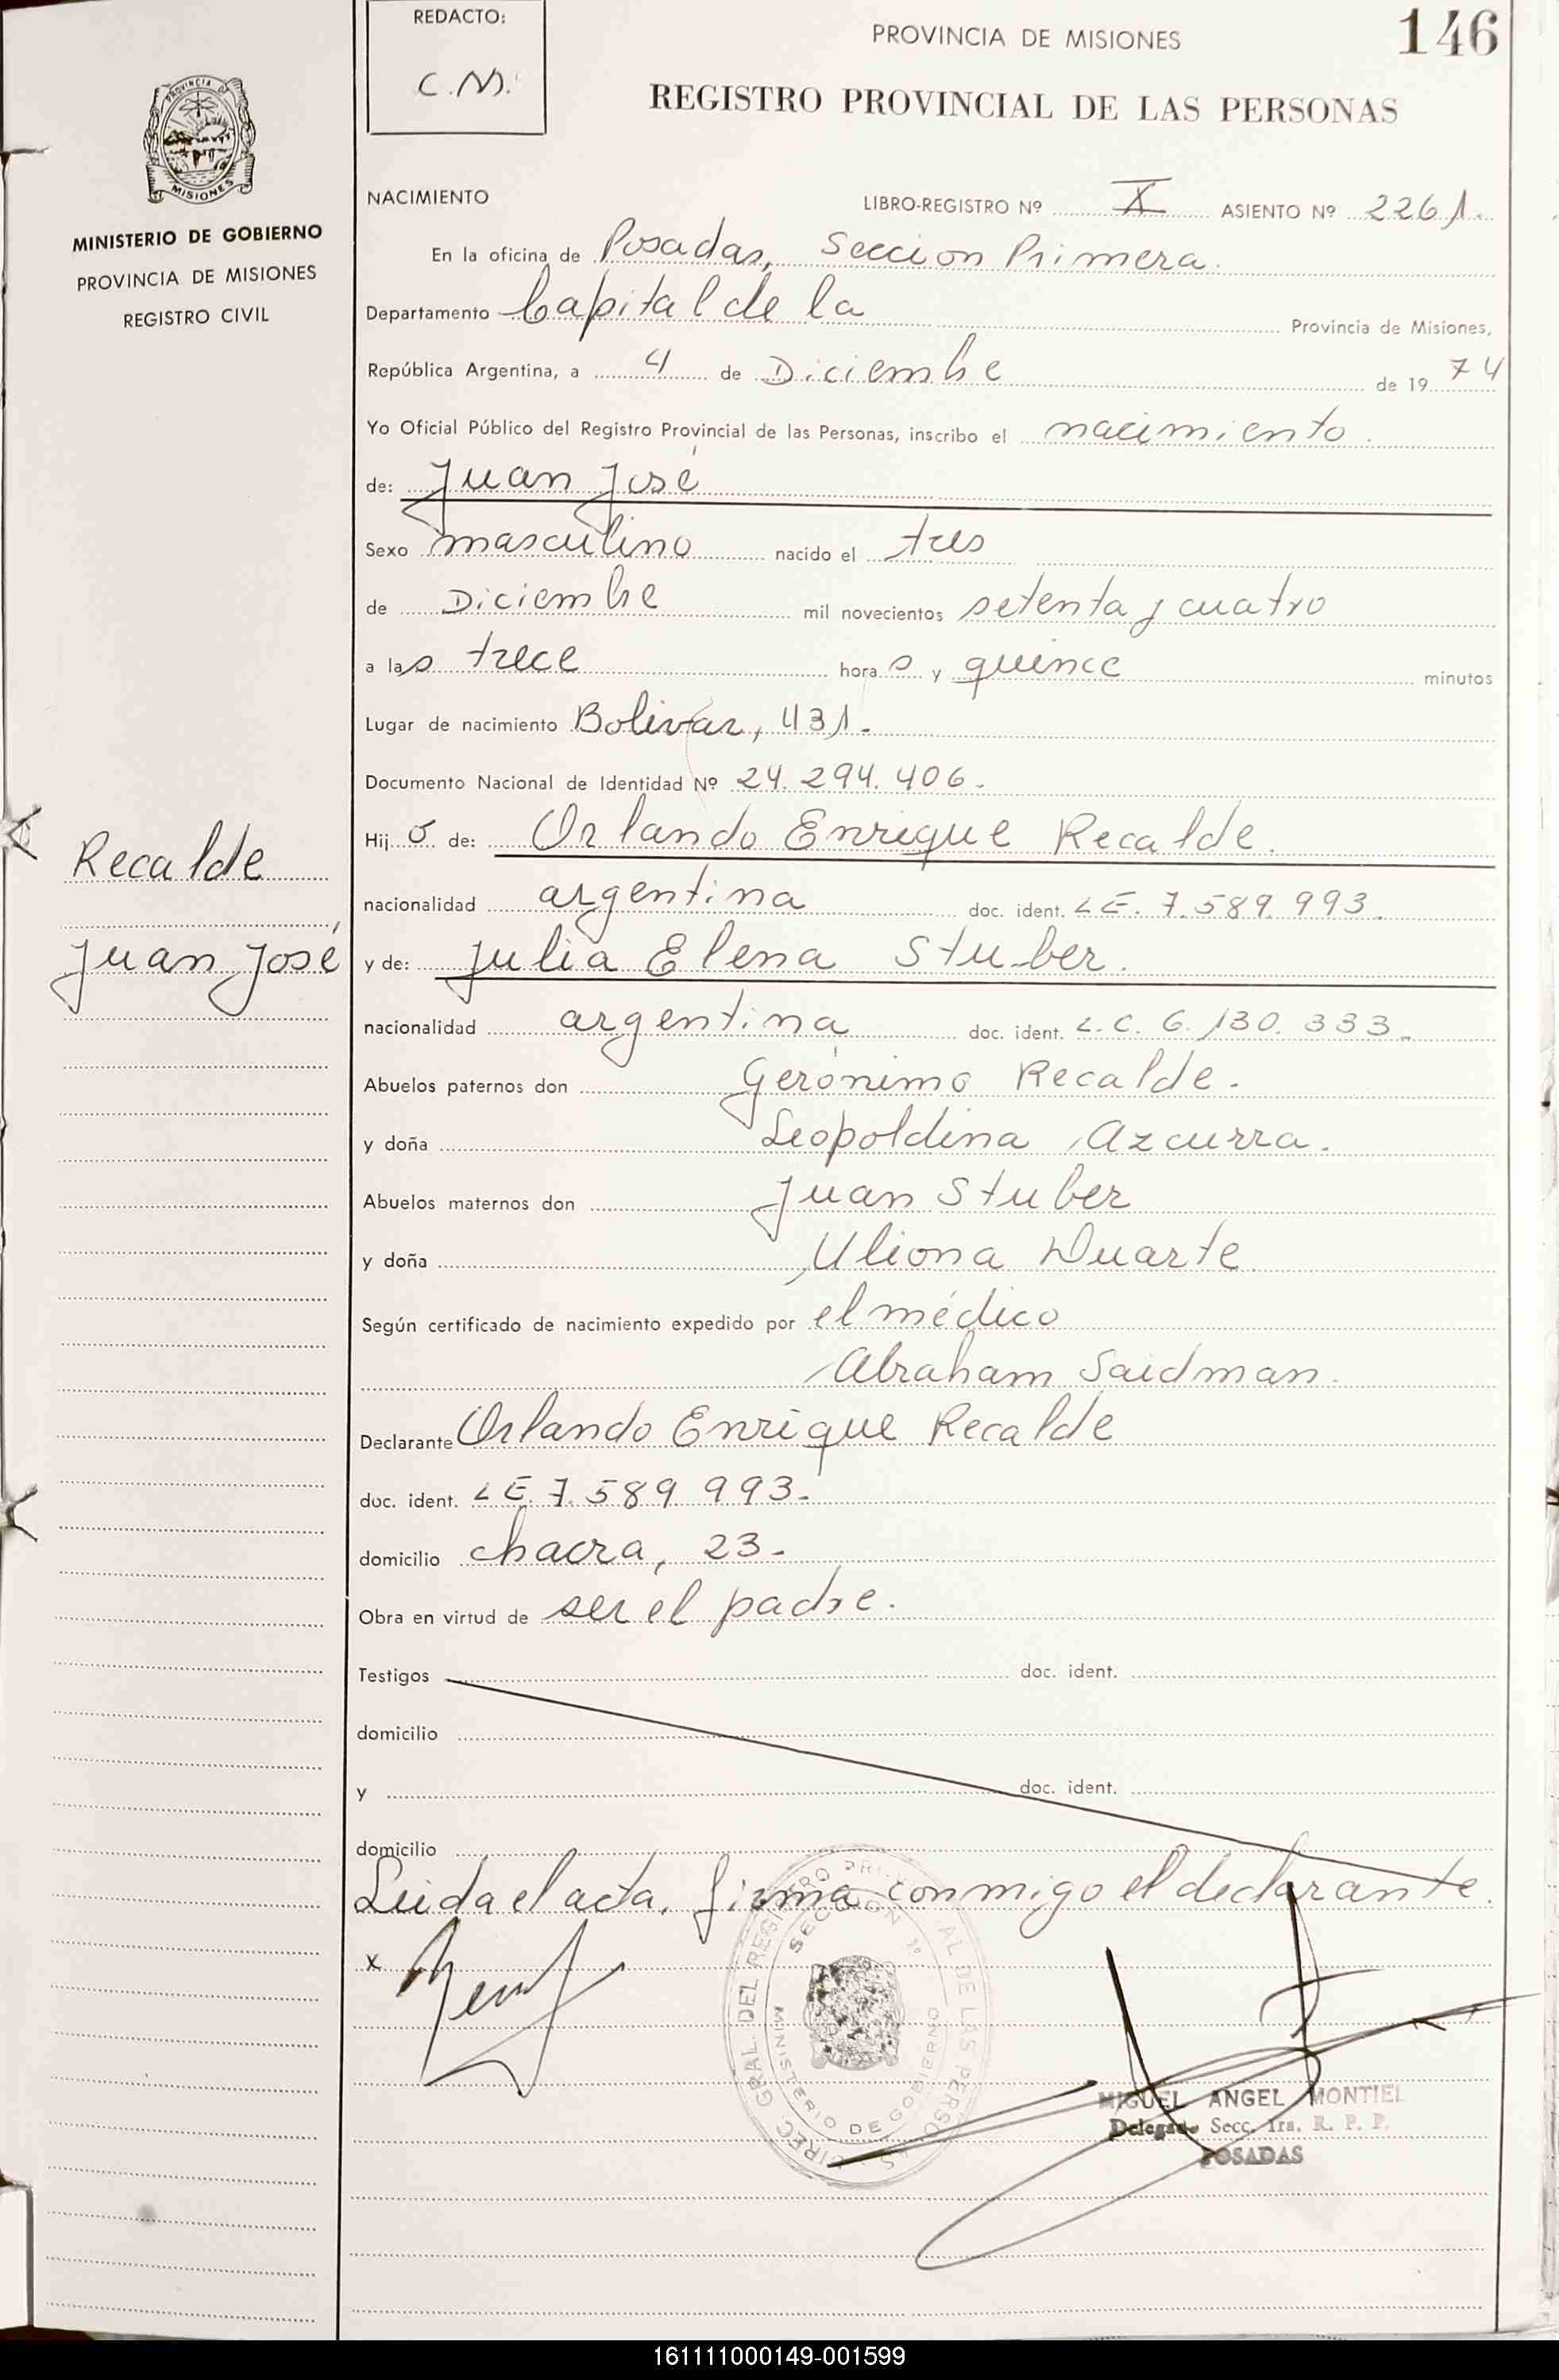 REDACTO:
C.M.
PROVINCIA DE MISIONES
146
REGISTRO PROVINCIAL DE LAS PERSONAS
PROVINCIA D
MISIONES
MINISTERIO DE GOBIERNO
PROVINCIA DE MISIONES
REGISTRO CIVIL
NACIMIENTO
LIBRO-REGISTRO Nº X ASIENTO Nº 2261.
En la oficina de Posadas, Seccion Primera.
Departamento Capital de la Provincia de Misiones,
República Argentina, a 4 de Diciembre de 19 74
Yo Oficial Público del Registro Provincial de las Personas, inscribo el nacimiento
de: Juan José
Sexo masculino nacido el tres
de Diciembre mil novecientos setenta y cuatro
a las trece horas y quince minutos
Lugar de nacimiento Bolivar, 431.-
Documento Nacional de Identidad Nº 24.294.406.-
Hijo de: Orlando Enrique Recalde.
Recalde
nacionalidad argentina doc. ident. LE. 7.589.993.
Juan José
y de: Julia Elena Stuber.
nacionalidad argentina doc. ident. L.C. 6.130.333.-
Abuelos paternos don Gerónimo Recalde.
y doña Leopoldina Azcurra.
Abuelos maternos don Juan Stuber
y doña Uliona Duarte.
Según certificado de nacimiento expedido por el médico
Abraham Saidman.
Declarante Orlando Enrique Recalde
doc. ident. LE. 7.589.993.-
domicilio chacra, 23.-
Obra en virtud de ser el padre.
Testigos doc. ident.
domicilio
y doc. ident.
domicilio
Leida el acta, firma conmigo el declarante.
x
DIREC. GRAL. DEL REGISTRO PROVINCIAL DE LAS PERSONAS
SECCION 1ª
MINISTERIO DE GOBIERNO
MIGUEL ANGEL MONTIEL
Delegado Secc. 1ra. R. P. P.
POSADAS
161111000149-001599